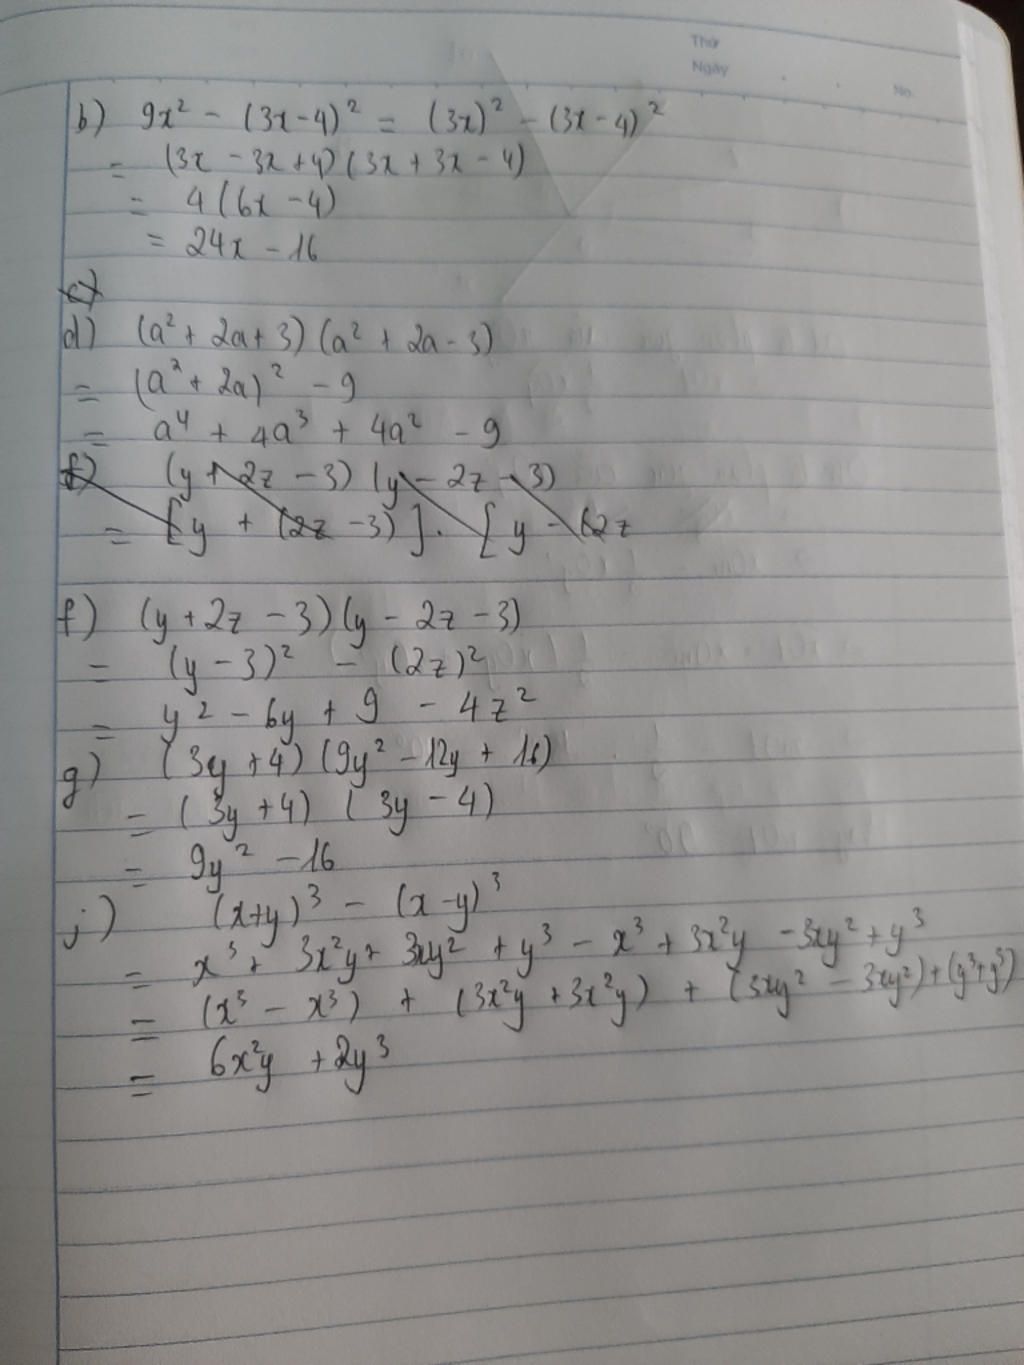 Thứ
Ngày
No.
b) 9x² - (3x-4)² = (3x)² - (3x-4)²
= (3x - 3x+4)(3x+3x-4)
= 4(6x-4)
= 24x - 16
c)
d) (a² + 2a+3)(a² + 2a-3)
= (a² + 2a)² - 9
= a⁴ + 4a³ + 4a² - 9
f) (y+2z-3)(y-2z-3)
= [y + (2z-3)].[y-(2z
f) (y+2z-3)(y-2z-3)
= (y-3)² - (2z)²
= y² - 6y + 9 - 4z²
g) (3y+4)(9y²-12y+16)
= (3y+4)(3y-4)
= 9y² - 16
j) (x+y)³ - (x-y)³
= x³ + 3x²y + 3xy² + y³ - x³ + 3x²y - 3xy² + y³
= (x³ - x³) + (3x²y + 3x²y) + (3xy² - 3xy²) + (y³+y³)
= 6x²y + 2y³